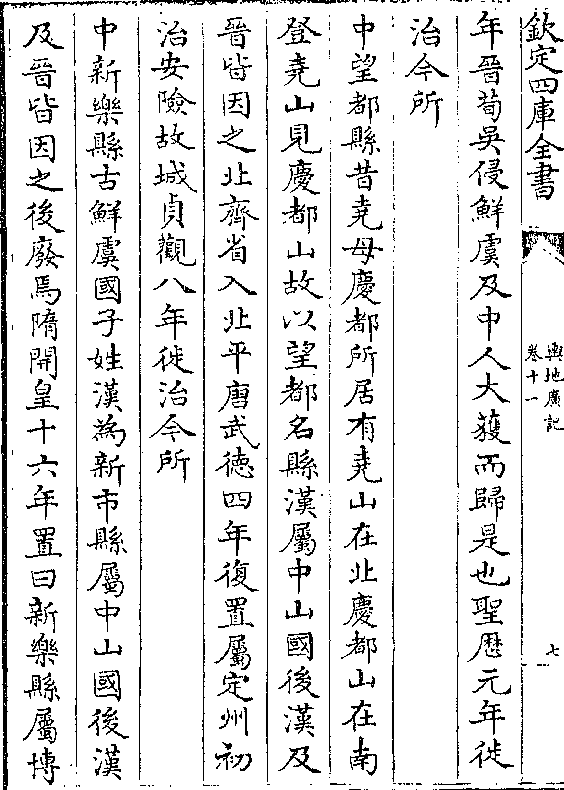 欽定四庫全書
輿地廣記
卷十一
七
年晉荀吳侵鮮虞及中人大獲而歸是也聖厯元年徙
治今所
中望都縣昔堯母慶都所居有堯山在北慶都山在南
登堯山見慶都山故以望都名縣漢屬中山國後漢及
晉皆因之北齊省入北平唐武德四年復置屬定州初
治安險故城貞觀八年徙治今所
中新樂縣古鮮虞國子姓漢為新市縣屬中山國後漢
及晉皆因之後廢焉隋開皇十六年置曰新樂縣屬博